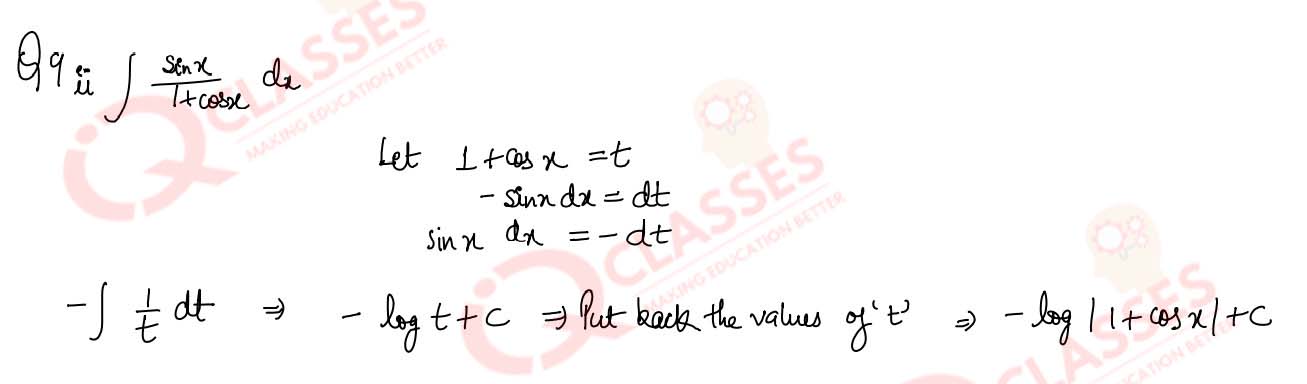 Q9 ii ∫ sinx/1+cosx dx
Let 1+cos x = t
- sinx dx = dt
sin x dx = - dt
-∫ 1/t dt ⇒ - log t + c ⇒ Put back the values of 't' ⇒ - log |1+cos x| + C
iQ CLASSES
MAKING EDUCATION BETTER
iQ CLASSES
MAKING EDUCATION BETTER
CLASSES